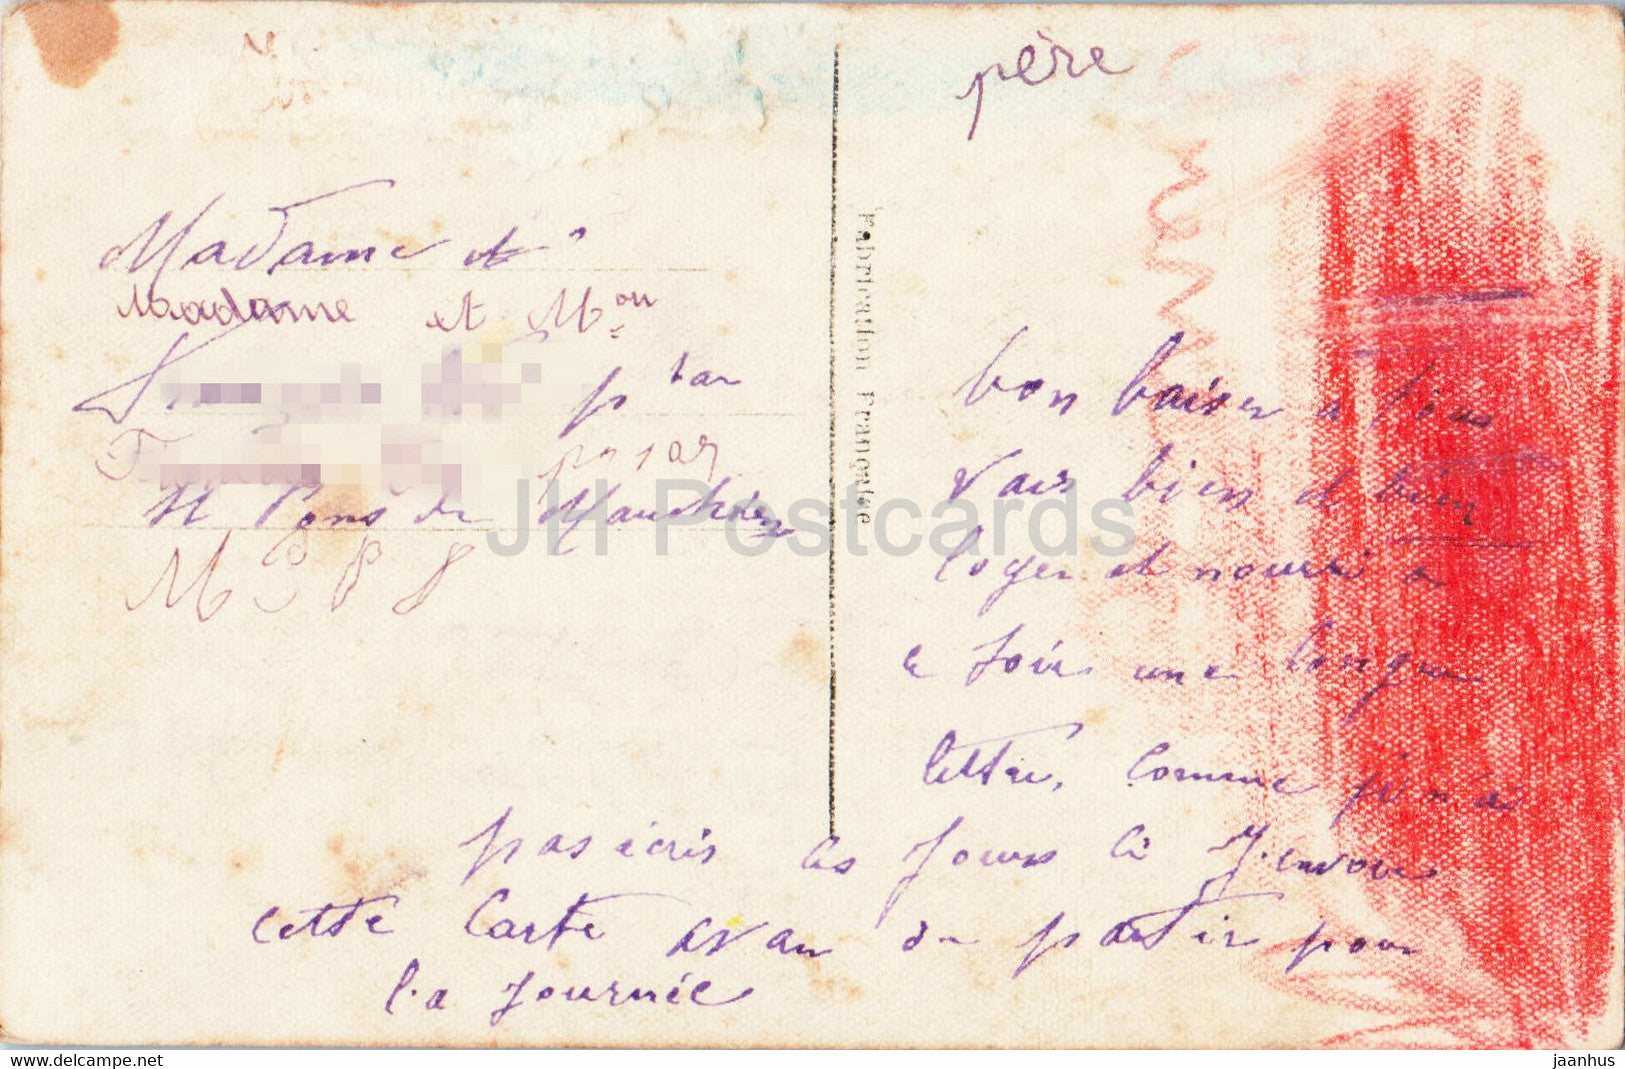 père
Madame et
Madame et Mon
par
par
St Pons de Mauchiens
M P P S
Fabrication Française
bon baiser a tous
Vais bien et bien
loger et nourri a
ce soir une longue
lettre, Comme j'in a
pas écris les jours ci J'envoie
cette Carte avan de partir pour
la journée
JH Postcards
www.delcampe.net
jaanhus